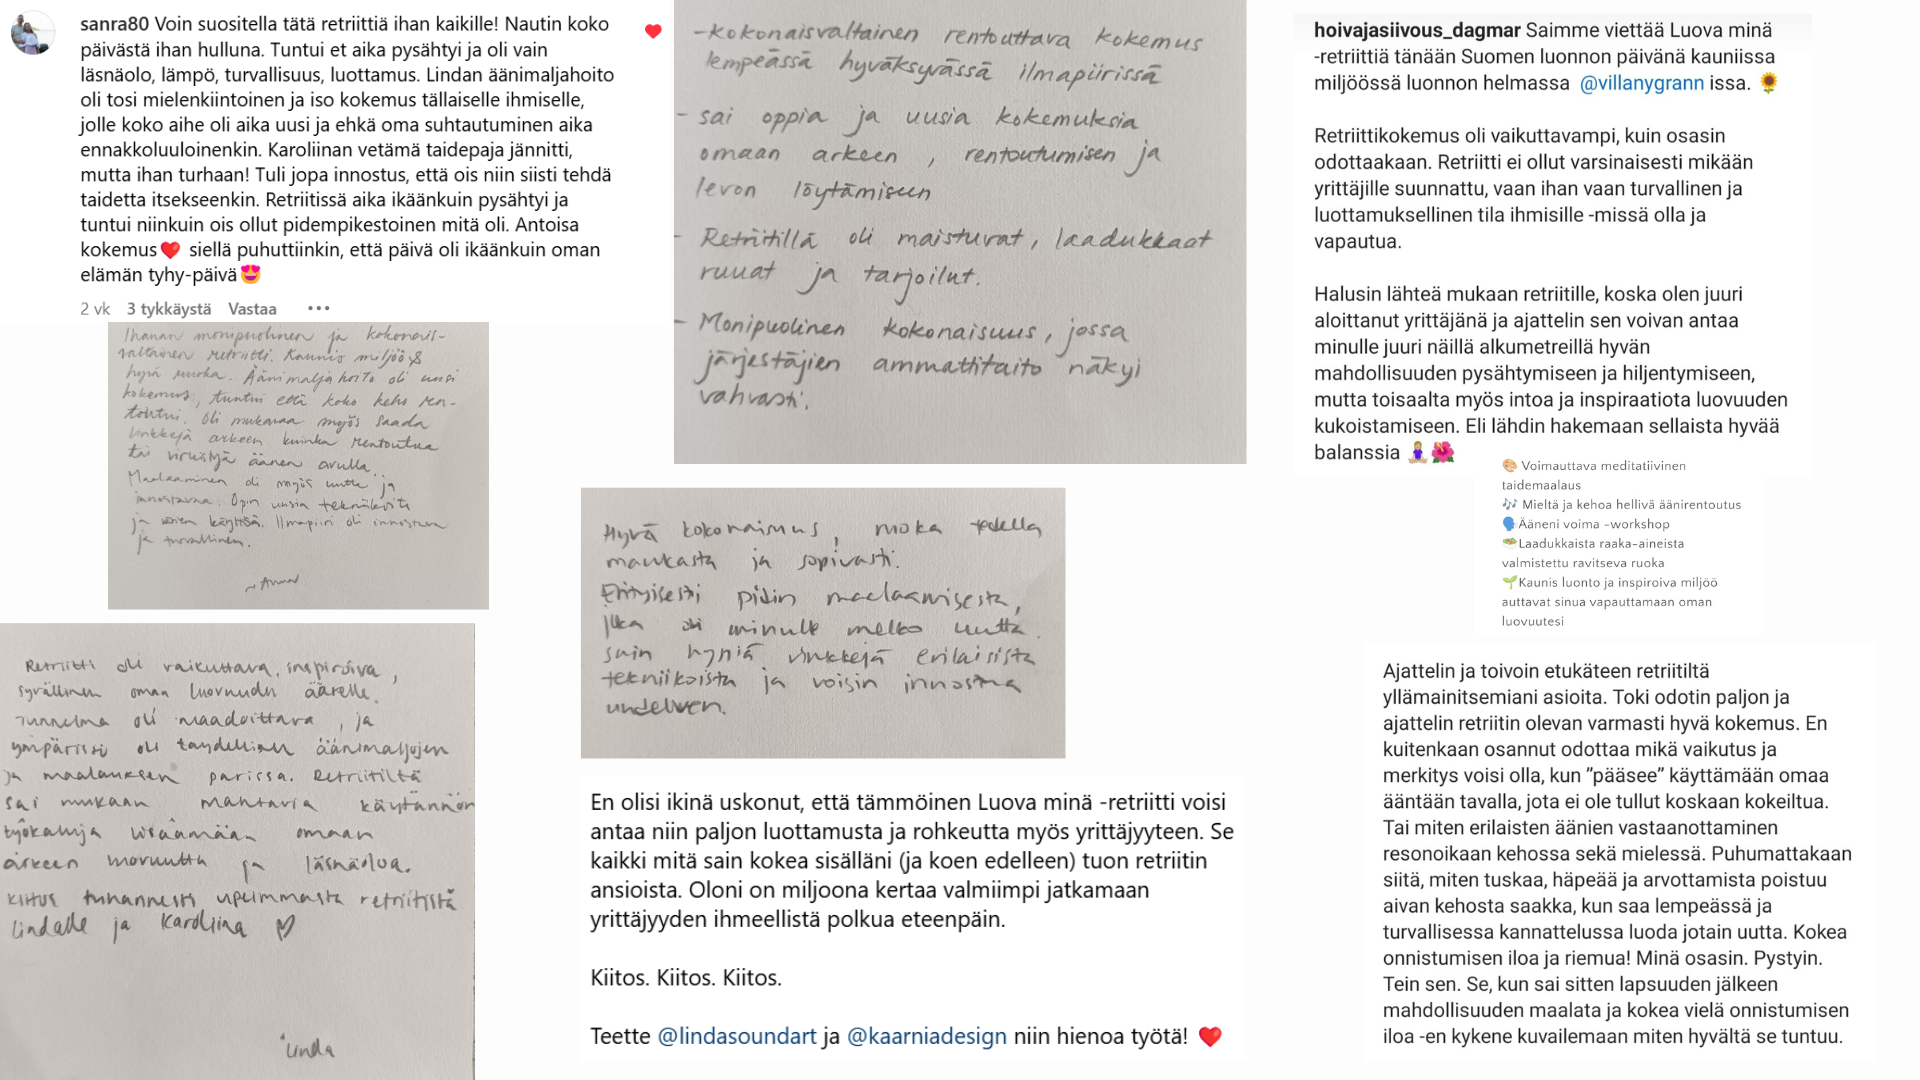 sanra80 Voin suositella tätä retriittiä ihan kaikille! Nautin koko
päivästä ihan hulluna. Tuntui et aika pysähtyi ja oli vain
läsnäolo, lämpö, turvallisuus, luottamus. Lindan äänimaljahoito
oli tosi mielenkiintoinen ja iso kokemus tällaiselle ihmiselle,
jolle koko aihe oli aika uusi ja ehkä oma suhtautuminen aika
ennakkoluuloinenkin. Karoliinan vetämä taidepaja jännitti,
mutta ihan turhaan! Tuli jopa innostus, että ois niin siisti tehdä
taidetta itsekseenkin. Retriitissä aika ikäänkuin pysähtyi ja
tuntui niinkuin ois ollut pidempikestoinen mitä oli. Antoisa
kokemus❤️ siellä puhuttiinkin, että päivä oli ikäänkuin oman
elämän tyhy-päivä😍
2 vk 3 tykkäystä Vastaa •••
Ihanan monipuolinen ja kokonais-
valtainen retriitti. Kaunis miljöö &
hyvä ruoka. Äänimaljahoito oli uusi
kokemus, tuntui että koko keho ren-
toutui. Oli mukavaa myös saada
vinkkejä arkeen kuinka rentoutua
tai virkistyä äänen avulla.
Maalaaminen oli myös uutta ja
innostavaa. Opin uusia tekniikoita
ja värien käyttöä. Ilmapiiri oli innostava
ja turvallinen.
~Anna
Retriitti oli vaikuttava, inspiroiva,
syvällinen oman luovuuden äärelle.
Tunnelma oli maadoittava, ja
ympäristö oli täydellinen äänimaljojen
ja maalauksen parissa. Retriitiltä
sai mukaan mahtavia käytännön
työkaluja lisäämään omaan
arkeen luovuutta ja läsnäoloa.
Kiitos tuhannesti upeimmasta retriitistä
Lindalle ja Karoliina ♡
Linda
-kokonaisvaltainen rentouttava kokemus
lempeässä hyväksyvässä ilmapiirissä
- sai oppia ja uusia kokemuksia
omaan arkeen, rentoutumisen ja
levon löytämiseen
- Retriitillä oli maistuvat, laadukkaat
ruuat ja tarjoilut.
- Monipuolinen kokonaisuus, jossa
järjestäjien ammattitaito näkyi
vahvasti.
Hyvä kokonaisuus, ruoka todella
maukasta ja sopivasti.
Erityisesti pidin maalaamisesta,
joka oli minulle melko uutta.
Sain hyviä vinkkejä erilaisista
tekniikoista ja voisin innostua
uudelleen.
En olisi ikinä uskonut, että tämmöinen Luova minä -retriitti voisi
antaa niin paljon luottamusta ja rohkeutta myös yrittäjyyteen. Se
kaikki mitä sain kokea sisälläni (ja koen edelleen) tuon retriitin
ansioista. Oloni on miljoona kertaa valmiimpi jatkamaan
yrittäjyyden ihmeellistä polkua eteenpäin.
Kiitos. Kiitos. Kiitos.
Teette @lindasoundart ja @kaarniadesign niin hienoa työtä! ❤️
hoivajasiivous_dagmar Saimme viettää Luova minä
-retriittiä tänään Suomen luonnon päivänä kauniissa
miljöössä luonnon helmassa @villanygrann issa. 🌻
Retriittikokemus oli vaikuttavampi, kuin osasin
odottaakaan. Retriitti ei ollut varsinaisesti mikään
yrittäjille suunnattu, vaan ihan vaan turvallinen ja
luottamuksellinen tila ihmisille -missä olla ja
vapautua.
Halusin lähteä mukaan retriitille, koska olen juuri
aloittanut yrittäjänä ja ajattelin sen voivan antaa
minulle juuri näillä alkumetreillä hyvän
mahdollisuuden pysähtymiseen ja hiljentymiseen,
mutta toisaalta myös intoa ja inspiraatiota luovuuden
kukoistamiseen. Eli lähdin hakemaan sellaista hyvää
balanssia 🧘🏼‍♀️🌺
🎨 Voimauttava meditatiivinen
taidemaalaus
🎶 Mieltä ja kehoa hellivä äänirentoutus
🗣️Ääneni voima -workshop
🥗Laadukkaista raaka-aineista
valmistettu ravitseva ruoka
🌱Kaunis luonto ja inspiroiva miljöö
auttavat sinua vapauttamaan oman
luovuutesi
Ajattelin ja toivoin etukäteen retriitiltä
yllämainitsemiani asioita. Toki odotin paljon ja
ajattelin retriitin olevan varmasti hyvä kokemus. En
kuitenkaan osannut odottaa mikä vaikutus ja
merkitys voisi olla, kun ”pääsee” käyttämään omaa
ääntään tavalla, jota ei ole tullut koskaan kokeiltua.
Tai miten erilaisten äänien vastaanottaminen
resonoikaan kehossa sekä mielessä. Puhumattakaan
siitä, miten tuskaa, häpeää ja arvottamista poistuu
aivan kehosta saakka, kun saa lempeässä ja
turvallisessa kannattelussa luoda jotain uutta. Kokea
onnistumisen iloa ja riemua! Minä osasin. Pystyin.
Tein sen. Se, kun sai sitten lapsuuden jälkeen
mahdollisuuden maalata ja kokea vielä onnistumisen
iloa -en kykene kuvailemaan miten hyvältä se tuntuu.